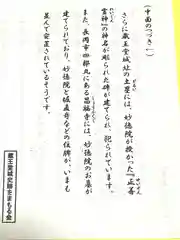 (中面のつづき…)
さらに蔵王堂城址の土塁には、妙徳院が授かった『正善
霊神』の神名が彫られた碑が建てられ、祀られています。
また、長岡市四郎丸にある昌福寺には、妙徳院のお墓が
建てられており、妙徳院と堀直寄などの位牌が、いまも
並んで安置されているそうです。
蔵王堂城史跡をまもる会